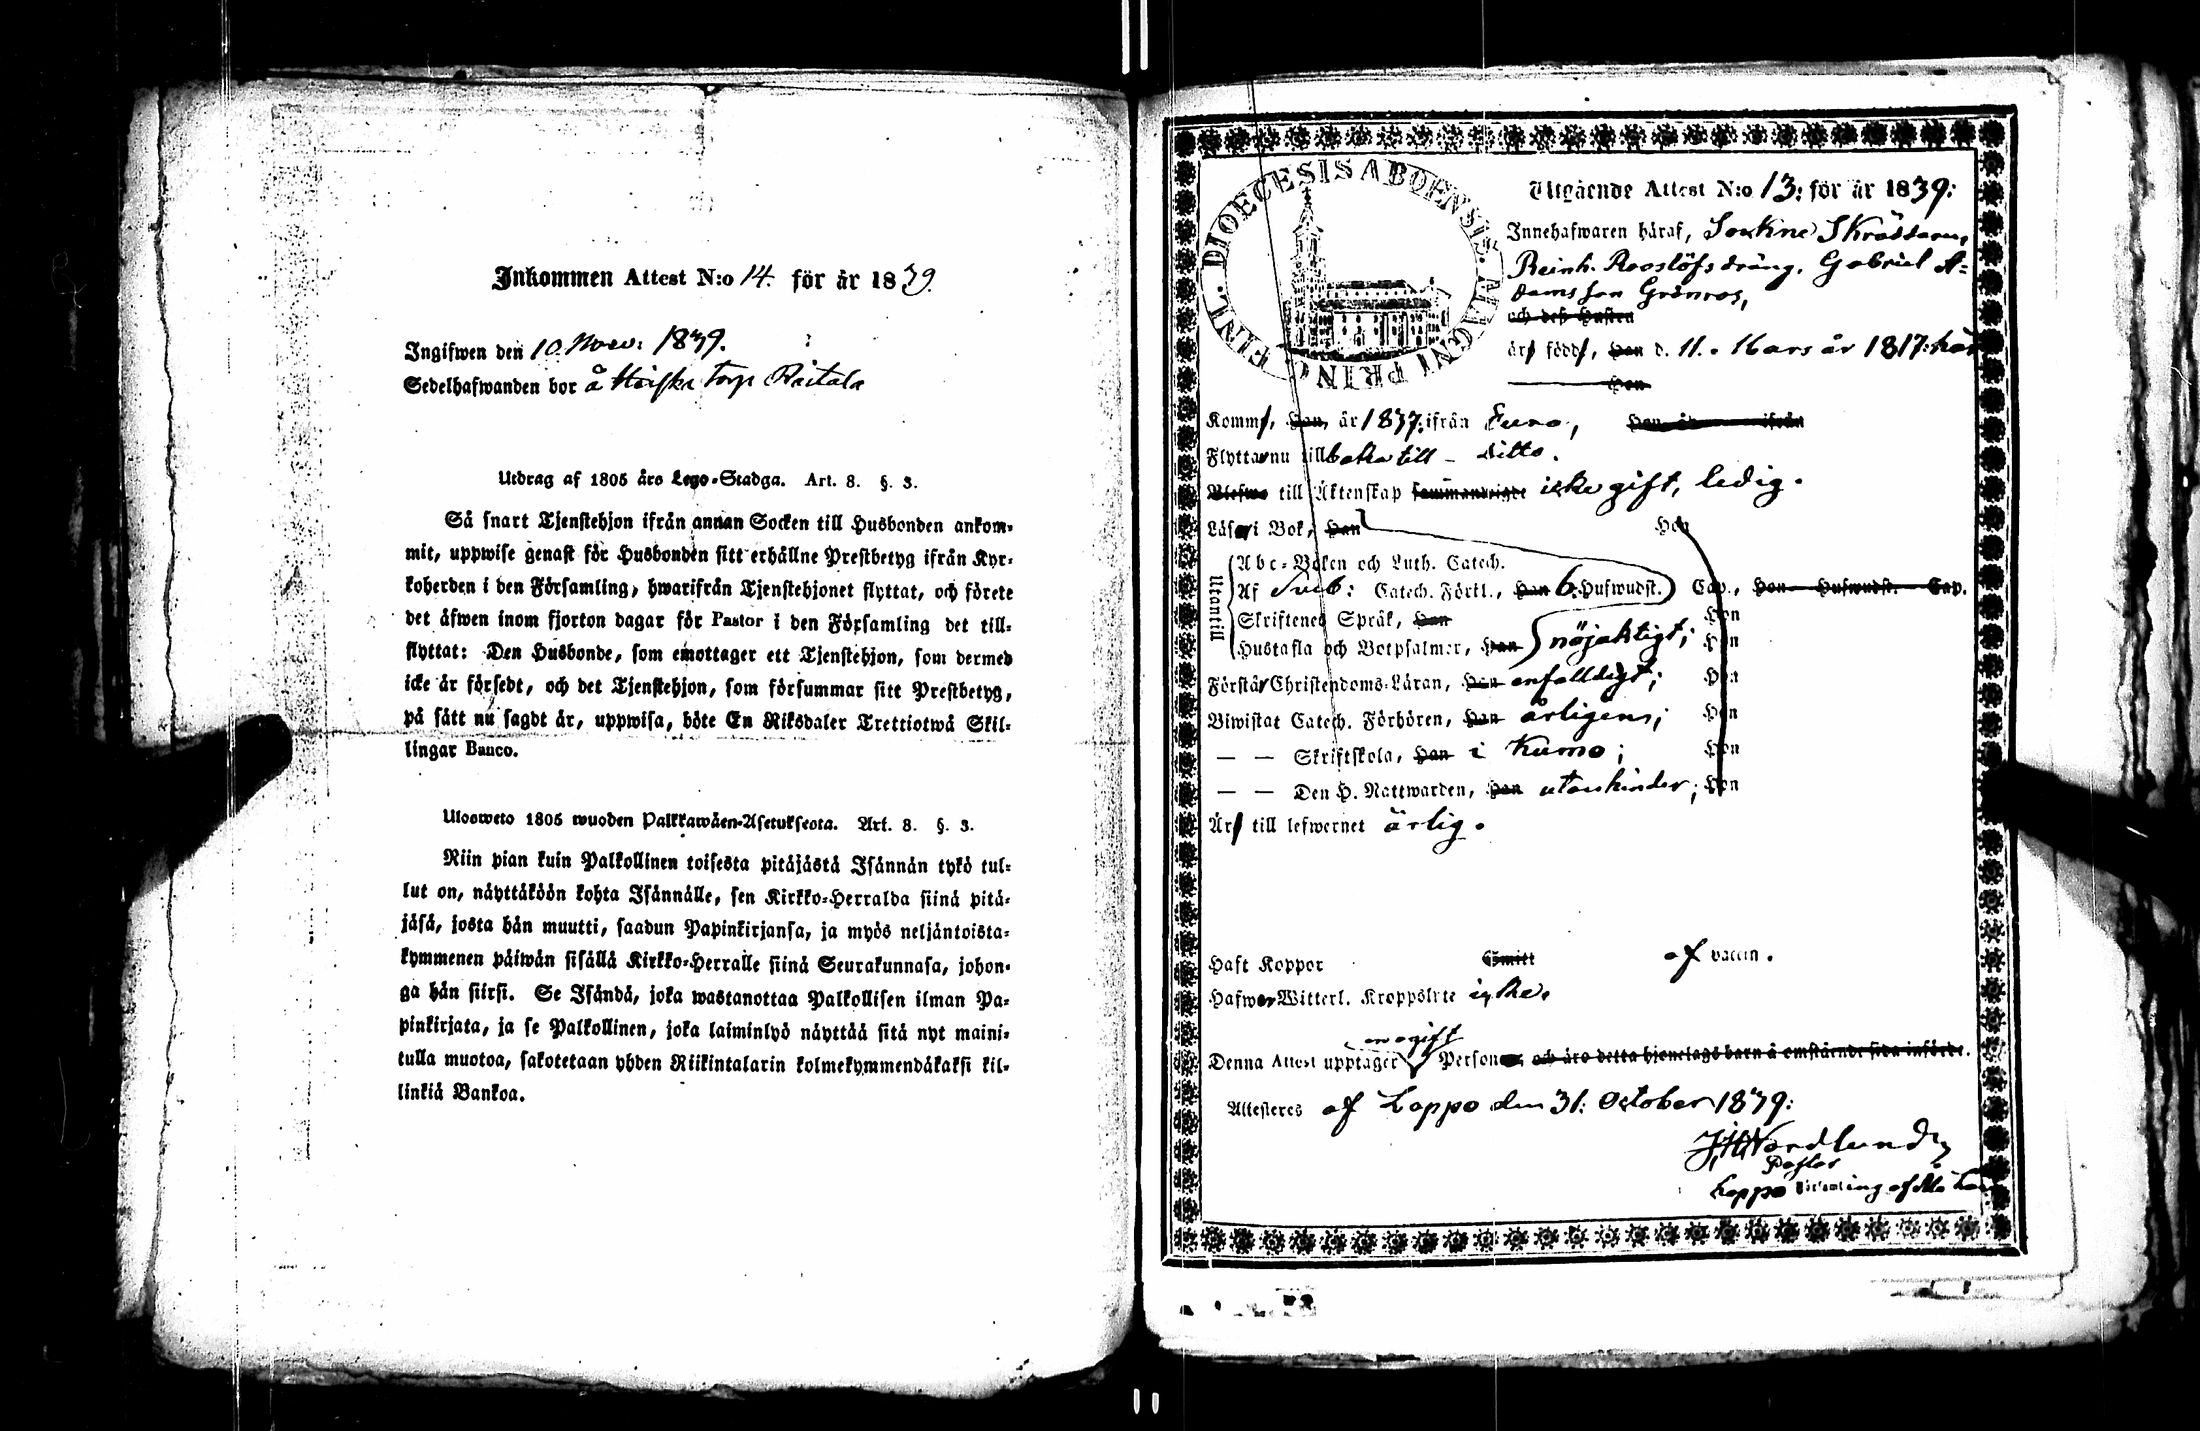 Inkommen Attest N:o 14. för år 1839.
Ingifwen den 10 Nov: 1839.
Sedelhafwanden bor å torp
Utdrag af 1805 års Lego-Stadga. Art. 8. §. 3.
Så snart Tjenstehjon ifrån annan Socken till Husbonden ankom-
mit, uppwise genast för Husbonden sitt erhållne Prestbetyg ifrån Kyr-
koherden i den Församling, hwarifrån Tjenstehjonet flyttat, och förete
det äfwen inom fjorton dagar för Pastor i den Församling det till-
flyttat: Den Husbonde, som emottager ett Tjenstehjon, som dermed
icke är försedt, och det Tjenstehjon, som försummar sitt Prestbetyg,
på sätt nu sagdt är, uppwisa, böte En Riksdaler Trettiotwå Skil-
lingar Banco.
Ulosweto 1805 wuoden Palkkawäen-Asetuksesta. Art. 8. §. 3.
Niin pian kuin Palkollinen toisesta pitäjästä Isännän tykö tul-
lut on, näyttäköön kohta Isännälle, sen Kirkko-Herralda siinä pitä-
jäsä, josta hän muutti, saadun Papinkirjansa, ja myös neljäntoista-
kymmenen päiwän sisällä Kirkko-Herralle siinä Seurakunnasa, johon-
ga hän siirsi. Se Isändä, joka wastanottaa Palkollisen ilman Pa-
pinkirjata, ja se Palkollinen, joka laiminlyö näyttää sitä nyt maini-
tulla muotoa, sakotetaan yhden Riikintalarin kolmekymmendäkaksi kil-
linkiä Bankoa.
DIOECESIS ABOENSIS. MAGNI PRINC. FINL.
Utgående Attest N:o 13: för år 1839:
Innehafwaren häraf, Sockne Skräddaren,
Reinh. Rooslöfs dräng, Gabriel A-
damsson Grönroos,
och deß Hustru
är född, Han d. 11. Mars år 1817. här
Hon
Komm, Han, år 1837. ifrån Eura, Hon år ifrån
Flyttar nu till baka till – ditto.
Blefwo till Äktenskap sammanwigde icke gift, ledig.
Läser i Bok, Han Hon
Utantill
Abc-Boken och Luth. Catech.
Af Sveb: Catech. Förkl., Han 6. Hufwudst. Cap., Hon Hufwudst. Cap.
Skriftenes Språk, Han Hon
Hustafla och Botpsalmer, Han nöjaktigt; Hon
Förstår Christendoms-Läran, Han enfaldigt; Hon
Biwistat Catech. Förhören, Han årligen; Hon
— — Skriftskola, Han i Kumo; Hon
— — Den H. Nattwarden, Han utan hinder; Hon
Är till lefwernet ärlig.
Haft Koppor Smitt af vaccin.
Hafwer Witterl. Kroppslyte icke.
en ogift
Denna Attest upptager Person och äro detta hjonelags barn å omstående sida införde.
Attesteres af Loppo den 31: October 1839:
J.H. Nordlund,
Pastor
Loppo Församling af Åbo Län